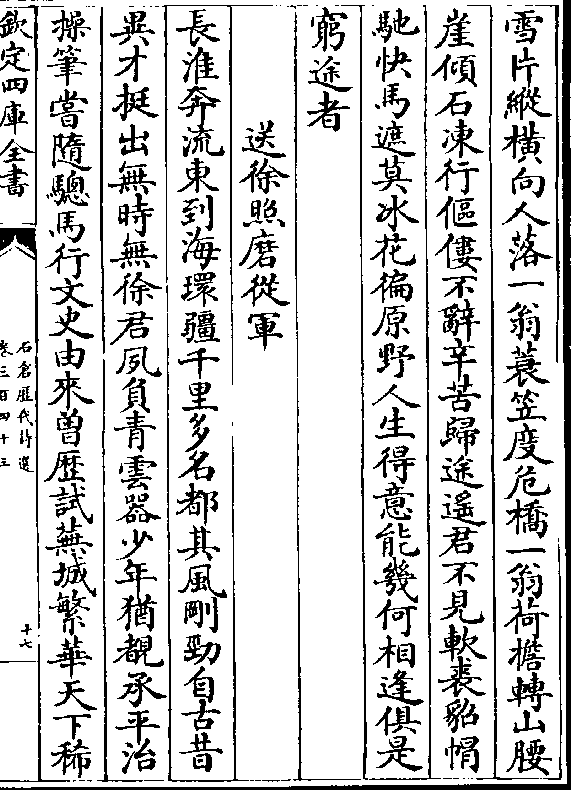 雪片縱橫向人落一翁蓑笠度危橋一翁荷擔轉山腰
崖傾石凍行傴僂不辭辛苦歸途遙君不見軟裘貂帽
馳快馬遮莫冰花徧原野人生得意能幾何相逢俱是
窮途者
送徐照磨從軍
長淮奔流東到海環疆千里多名都其風剛勁自古昔
異才挺出無時無徐君夙負青雲器少年猶覩承平治
操筆嘗隨驄馬行文史由來曽歴試蕪城繁華天下稀
欽定四庫全書
石倉歴代詩選
卷三百四十三
十七